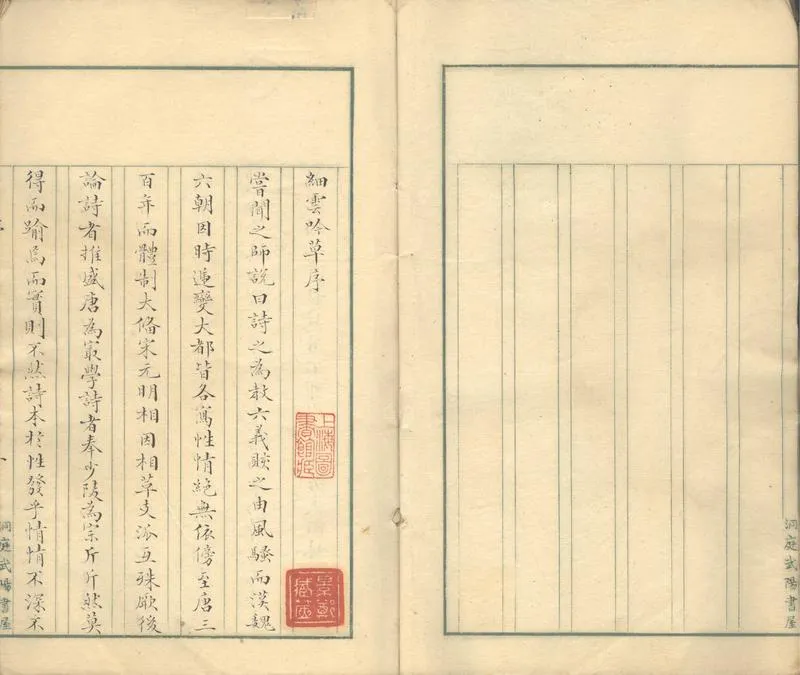 細雲吟草序
嘗聞之師說曰詩之為教六義賅之由風騷而漢魏
六朝因時遞變大都皆各寫性情絕無依傍至唐三
百年而體制大偹宋元明相因相革支派互殊厥後
論詩者推盛唐為冣學詩者奉少陵為宗斤斤然莫
得而踰焉而實則不然詩本於性發乎情情不深不
上海圖書館藏
景鄭藏薰
洞庭武陽書屋
洞庭武陽書屋